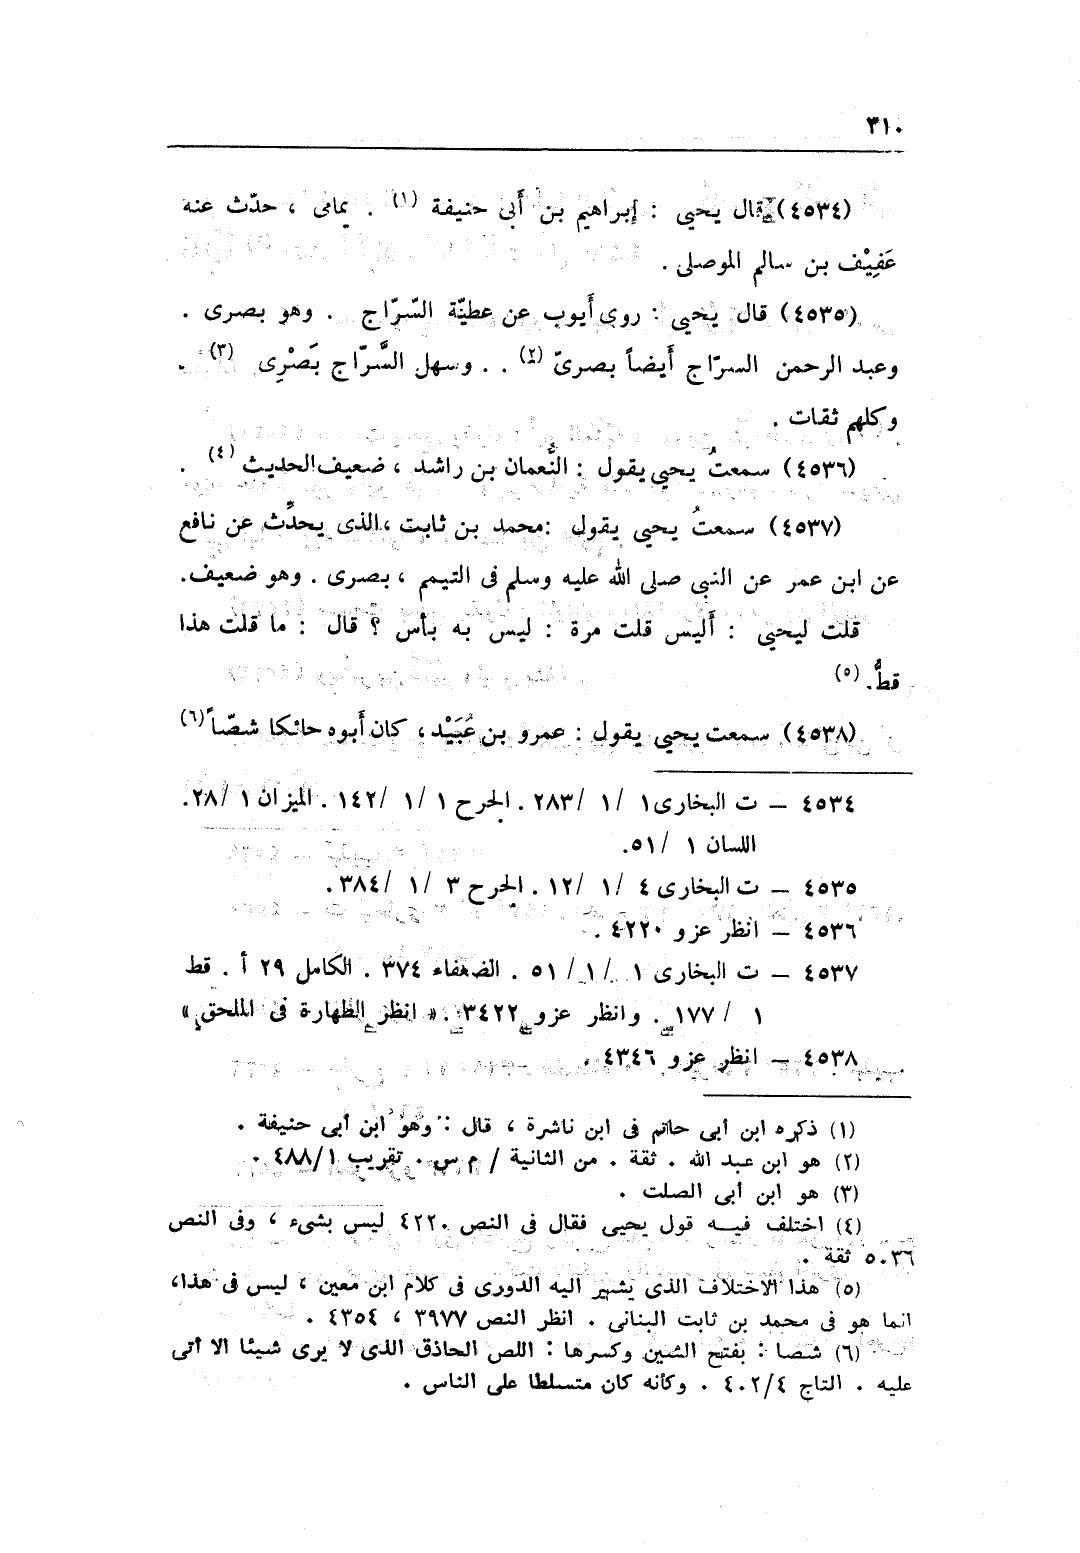 ٣١٠
(٤٥٣٤) قال يحيى : إبراهيم بن أَبى حنيفة (١) . يمامى ، حدّث عنه
عَفِيْف بن سالم الموصلى .
(٤٥٣٥) قال يحيى : روى أَيوب عن عطيّة السّرّاج . وهو بصرى .
وعبد الرحمن السرّاج أَيضاً بصرىّ (٢) . . وسهل السَّرّاج بَصْرِى (٣) .
وكلهم ثقات .
(٤٥٣٦) سمعتُ يحيى يقول : النُّعمان بن راشد ، ضعيف الحديث (٤) .
(٤٥٣٧) سمعتُ يحيى يقول : محمد بن ثابت ، الذى يحدِّث عن نافع
عن ابن عمر عن النبى صلى الله عليه وسلم فى التيمم ، بصرى . وهو ضعيف.
قلت ليحيى : أَليس قلت مرة : ليس به بأس ؟ قال : ما قلت هذا
قطُّ. (٥)
(٤٥٣٨) سمعت يحيى يقول : عمرو بن عُبَيْد ، كان أَبوه حائكا شصّاً (٦)
٤٥٣٤ – ت البخارى ١ /١ /٢٨٣ . الجرح ١ /١ /١٤٢ . الميزان ١ /٢٨.
اللسان ١ /٥١.
٤٥٣٥ – ت البخارى ٤ /١ /١٢ . الجرح ٣ /١ /٣٨٤ .
٤٥٣٦ – انظر عزو ٤٢٢٠ .
٤٥٣٧ – ت البخارى ١ /١ /٥١ . الضعفاء ٣٧٤ . الكامل ٢٩ أ . قط
١ /١٧٧ . وانظر عزو ٣٤٢٢ . « انظر الطهارة فى الملحق »
٤٥٣٨ – انظر عزو ٤٣٤٦ .
(١) ذكره ابن أبى حاتم فى ابن ناشرة ، قال : وهو ابن أبى حنيفة .
(٢) هو ابن عبد الله . ثقة . من الثانية / م س . تقريب ٤٨٨/١ .
(٣) هو ابن أبى الصلت .
(٤) اختلف فيه قول يحيى فقال فى النص ٤٢٢٠ ليس بشىء ، وفى النص
٥٠٣٦ ثقة .
(٥) هذا الاختلاف الذى يشير اليه الدورى فى كلام ابن معين ، ليس فى هذا،
انما هو فى محمد بن ثابت البنانى . انظر النص ٣٩٧٧ ، ٤٣٥٤ .
(٦) شصا : بفتح الشين وكسرها : اللص الحاذق الذى لا يرى شيئا الا أتى
عليه . التاج ٤٠٢/٤ . وكأنه كان متسلطا على الناس .